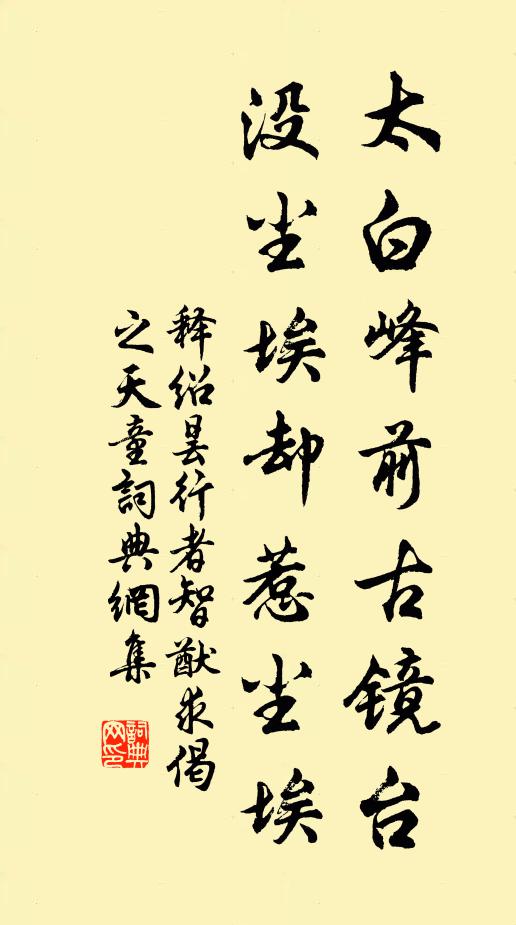 太白峰前古镜台
没尘埃却惹尘埃
释绍昙行者智猷求偈
之天童詞典網集
詞典
网印